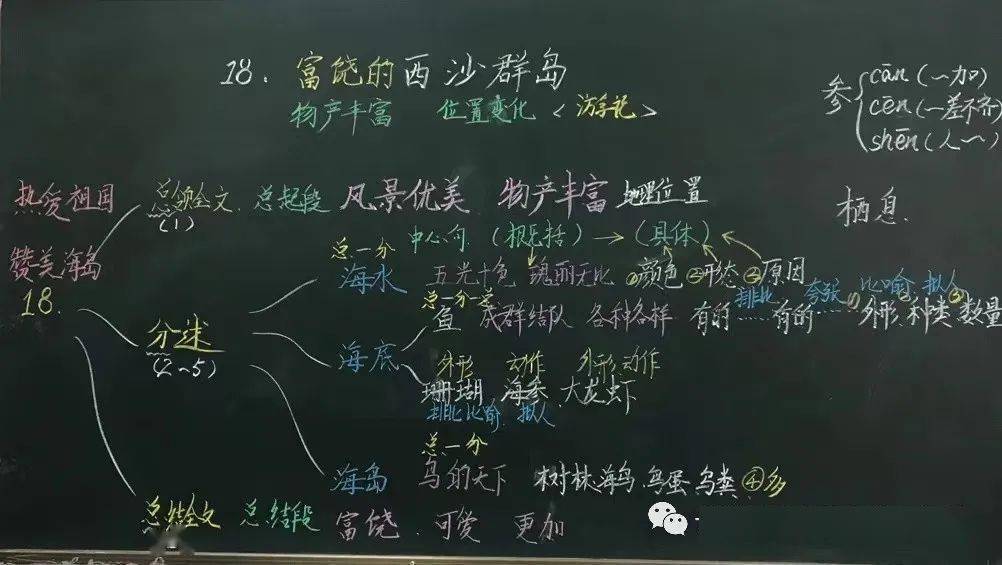 18. 富饶的西沙群岛
物产丰富 位置变化 <游字花>
参 cān (~加)
cēn (~差不齐)
shēn (人~)
栖息.
热爱祖国
赞美海岛
18.
总领全文. 总起段 风景优美 物产丰富 地理位置
(1)
中心句 (概括) → (具体)
总一分
海水 五光十色 瑰丽无比 ①颜色 ②形态 ③原因
总一分一总 排比 夸张 比喻 拟人
鱼 成群结队 各种各样 有的……有的…… ①外形 ②种类 ③数量
分述
(2~5)
海底
外形 动作 外形.动作
珊瑚 海参 大龙虾
排比比喻 拟人
总一分
海岛 鸟的天下 树林.海鸟.鸟蛋.鸟粪 ④多
总结全文 总结段 富饶 可爱 更加